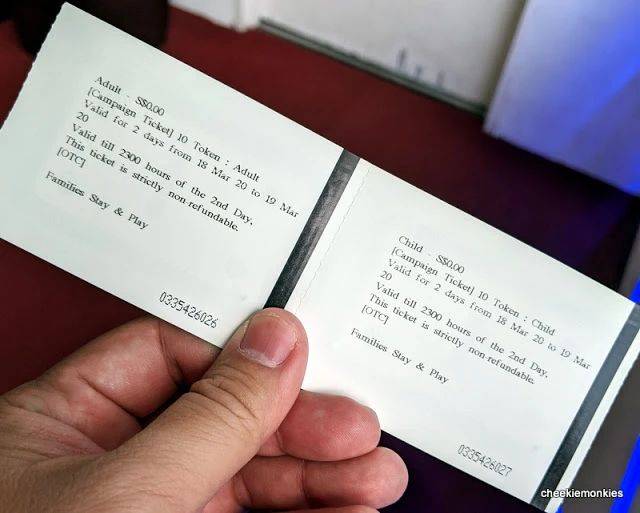 Adult - S$0.00
[Campaign Ticket] 10 Token : Adult
Valid for 2 days from 18 Mar 20 to 19 Mar
20
Valid till 2300 hours of the 2nd Day,
This ticket is strictly non-refundable.
[OTC]
Families Stay & Play
0335426026
Child - S$0.00
[Campaign Ticket] 10 Token : Child
Valid for 2 days from 18 Mar 20 to 19 Mar
20
Valid till 2300 hours of the 2nd Day,
This ticket is strictly non-refundable.
[OTC]
Families Stay & Play
0335426027
cheekiemonkies